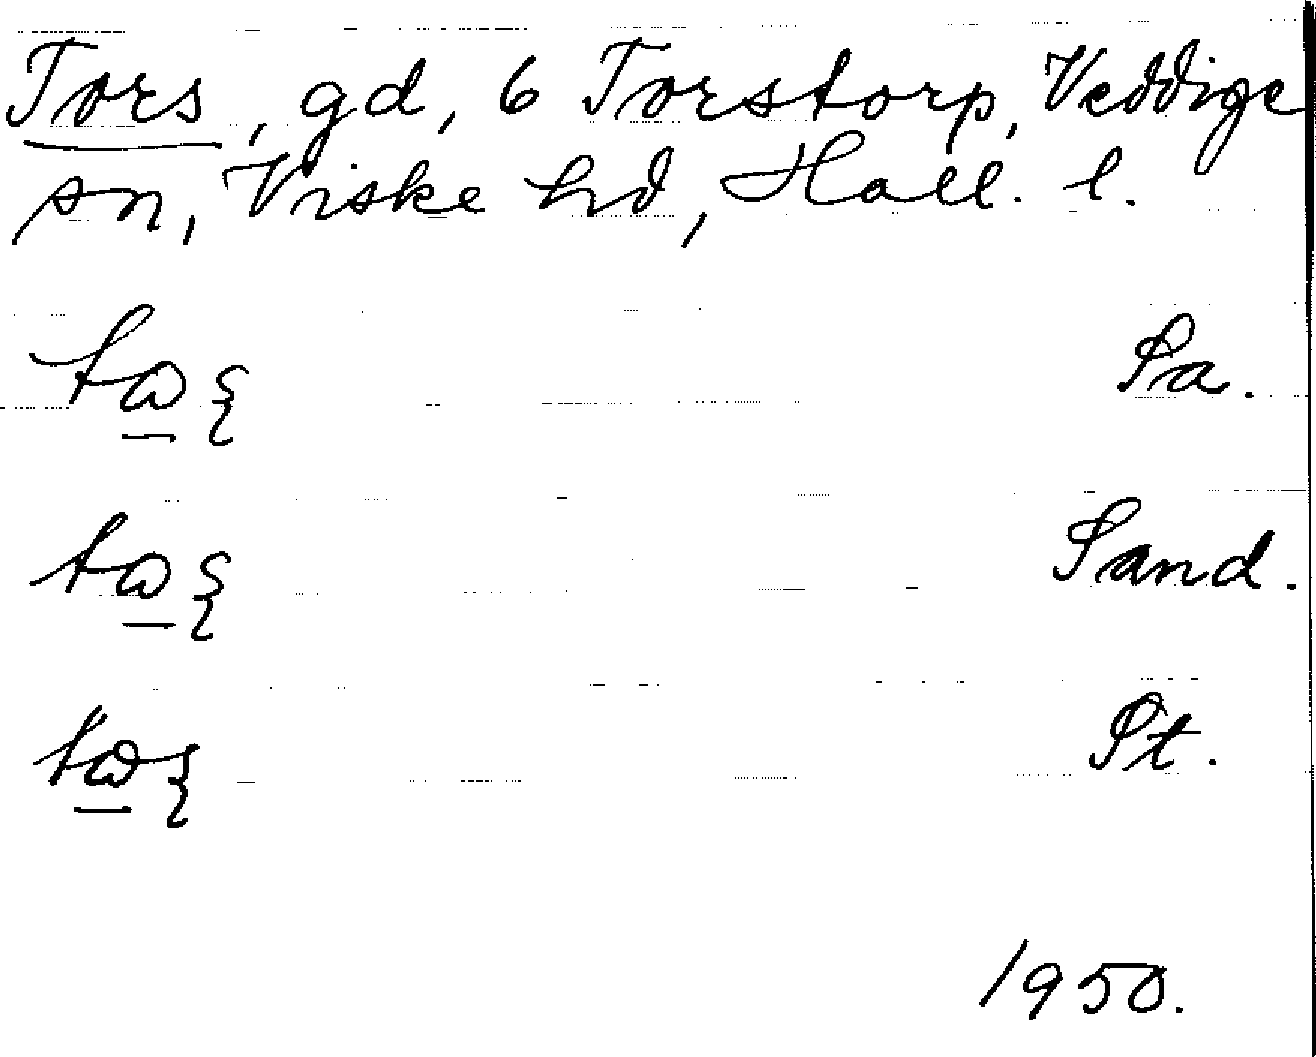 Tors, gd, 6 Torstorp, Veddige
sn, Viske hd, Hall. l.
tⱷξ Sa.
tⱷξ Sand.
tⱷξ St.
1950.